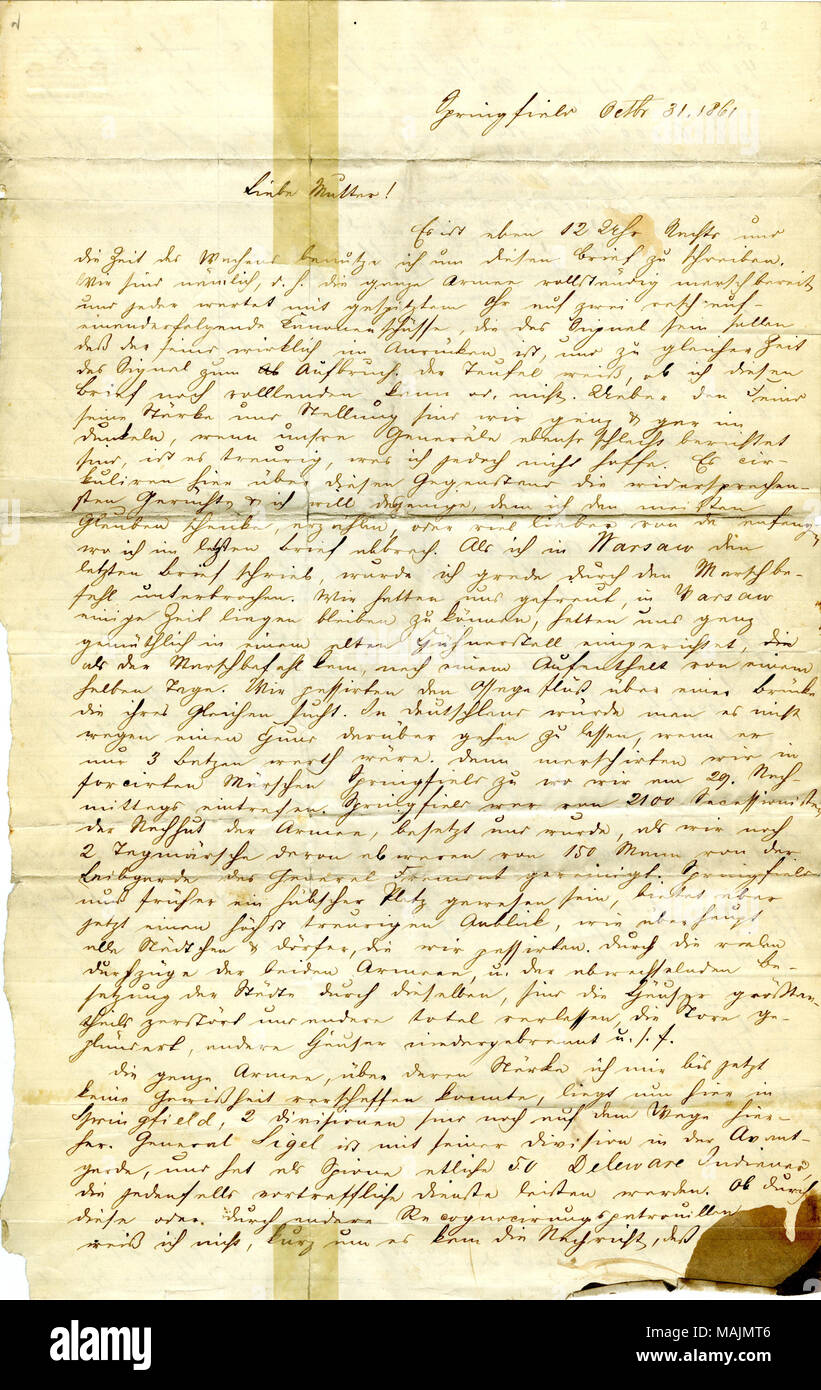 Springfield Octbr 31. 1861
Liebe Mutter!
Es ist eben 12 Uhr Nachts und
die Zeit des Wachens benutze ich um diesen Brief zu schreiben.
Wir sind nämlich, d. h. die ganze Armee vollständig marschbereit
und jeder wartet mit gespitztem Ohr auf zwei rasch auf-
einanderfolgende Kanonenschüsse, die das Signal sein sollen
daß der Feind wirklich im Anrücken ist, und zu gleicher Zeit
das Signal zum Aufbruch. der Teufel weiß, ob ich diesen
Brief noch vollenden kann od. nicht. Ueber den Feind
seine Stärke und Stellung sind wir ganz & gar im
dunkeln, wenn unsre Generäle ebenso schlecht berichtet
sind, ist es traurig, was ich jedoch nicht hoffe. Es cir-
kuliren hier über diesen Gegenstand die widersprechen-
sten Gerüchte, & ich will dasjenige, dem ich den meisten
Glauben schenke, erzählen, oder viel lieber von da anfangen
wo ich im letzten Brief abbrach. Als ich in Warsaw den
letzten Brief schrieb, wurde ich grade durch den Marschbe-
fehl unterbrochen. Wir hatten uns gefreut, in Warsaw
einige Zeit liegen bleiben zu können, hatten uns ganz
gemüthlich in einem alten Hühnerstall eingerichtet, die
als der Marschbefehl kam, nach einem Aufenthalt von einem
halben Tage. Wir passirten den Osage fluß über eine Brücke
die ihres Gleichen sucht. In Deutschland würde man es nicht
wagen einen Hund darüber gehen zu lassen, wenn er
nur 3 Batzen werth wäre. Dann marschirten wir in
forcirten Märschen Springfield zu wo wir am 29. Nach-
mittags eintrafen. Springfield war von 2100 Secessionisten,
der Nachhut der Armee, besetzt und wurde, als wir noch
2 Tagmärsche davon ab waren von 150 Mann von der
Leibgarde des General Fremont gereinigt. Springfield
muß früher ein hübscher Platz gewesen sein, bietet aber
jetzt einen höchst traurigen Anblick, wie überhaupt
alle Städtchen & Dörfer, die wir passirten. Durch die vielen
Durchzüge der beiden Armeen, u. der abwechselnden Be-
setzung der Städte durch dieselben, sind die Häuser größten-
theils zerstört und andere total verlassen, die Store ge-
plündert, andere Häuser niedergebrannt u. s. f.
Die ganze Armee, über deren Stärke ich mir bis jetzt
keine Gewißheit verschaffen konnte, liegt um hier in
Springfield, 2 Divisionen sind noch auf dem Wege hier-
her. General Sigel ist mit seiner Division in der Avant-
garde, und hat als Spione etliche 50 Deleware Indianer,
die jedenfalls vortreffliche Dienste leisten werden. Ob durch
diese oder durch andere Recognocirungspatrouillen
weiß ich nicht, kurz um es kam die Nachricht, daß
alamy
Image ID: MAJMT6
www.alamy.com